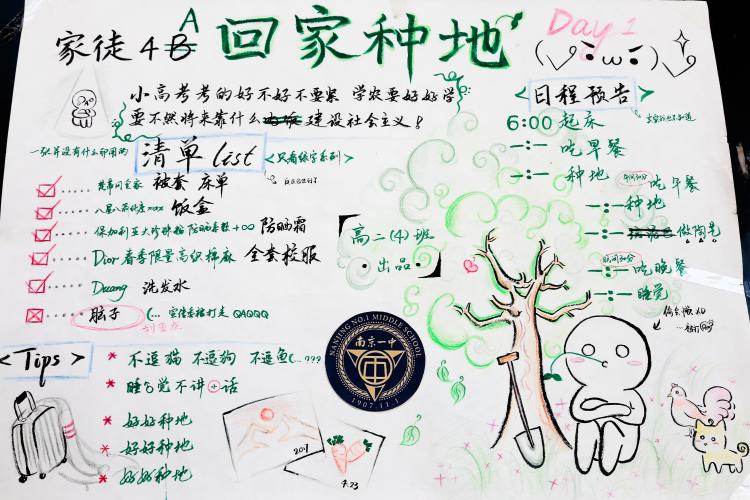 家徒4B A
回家种地
Day 1
小高考考的好不好不要紧 学农要好好学
要不然将来靠什么 建设社会主义!
一张并没有什么卵用的
清单list
<只看练字系列>
被套 床单
饭盒
防晒霜
Dior春季限量高级棉麻 全套校服
Duang 洗发水
脑子
QAQQQ
划重点
<Tips>
* 不逗猫 不逗狗 不逗鱼(...???
* 睡觉不讲话
* 好好种地
* 好好种地
* 好好种地
高二(4)班
出品
NANJING NO.1 MIDDLE SCHOOL
南京一中
1907.11.1
2017
4.23
<日程预告>
6:00 起床
-:- 吃早餐
-:- 种地
吃午餐
-:- 种地
-:- 做陶艺
吃晚餐
-:- 睡觉